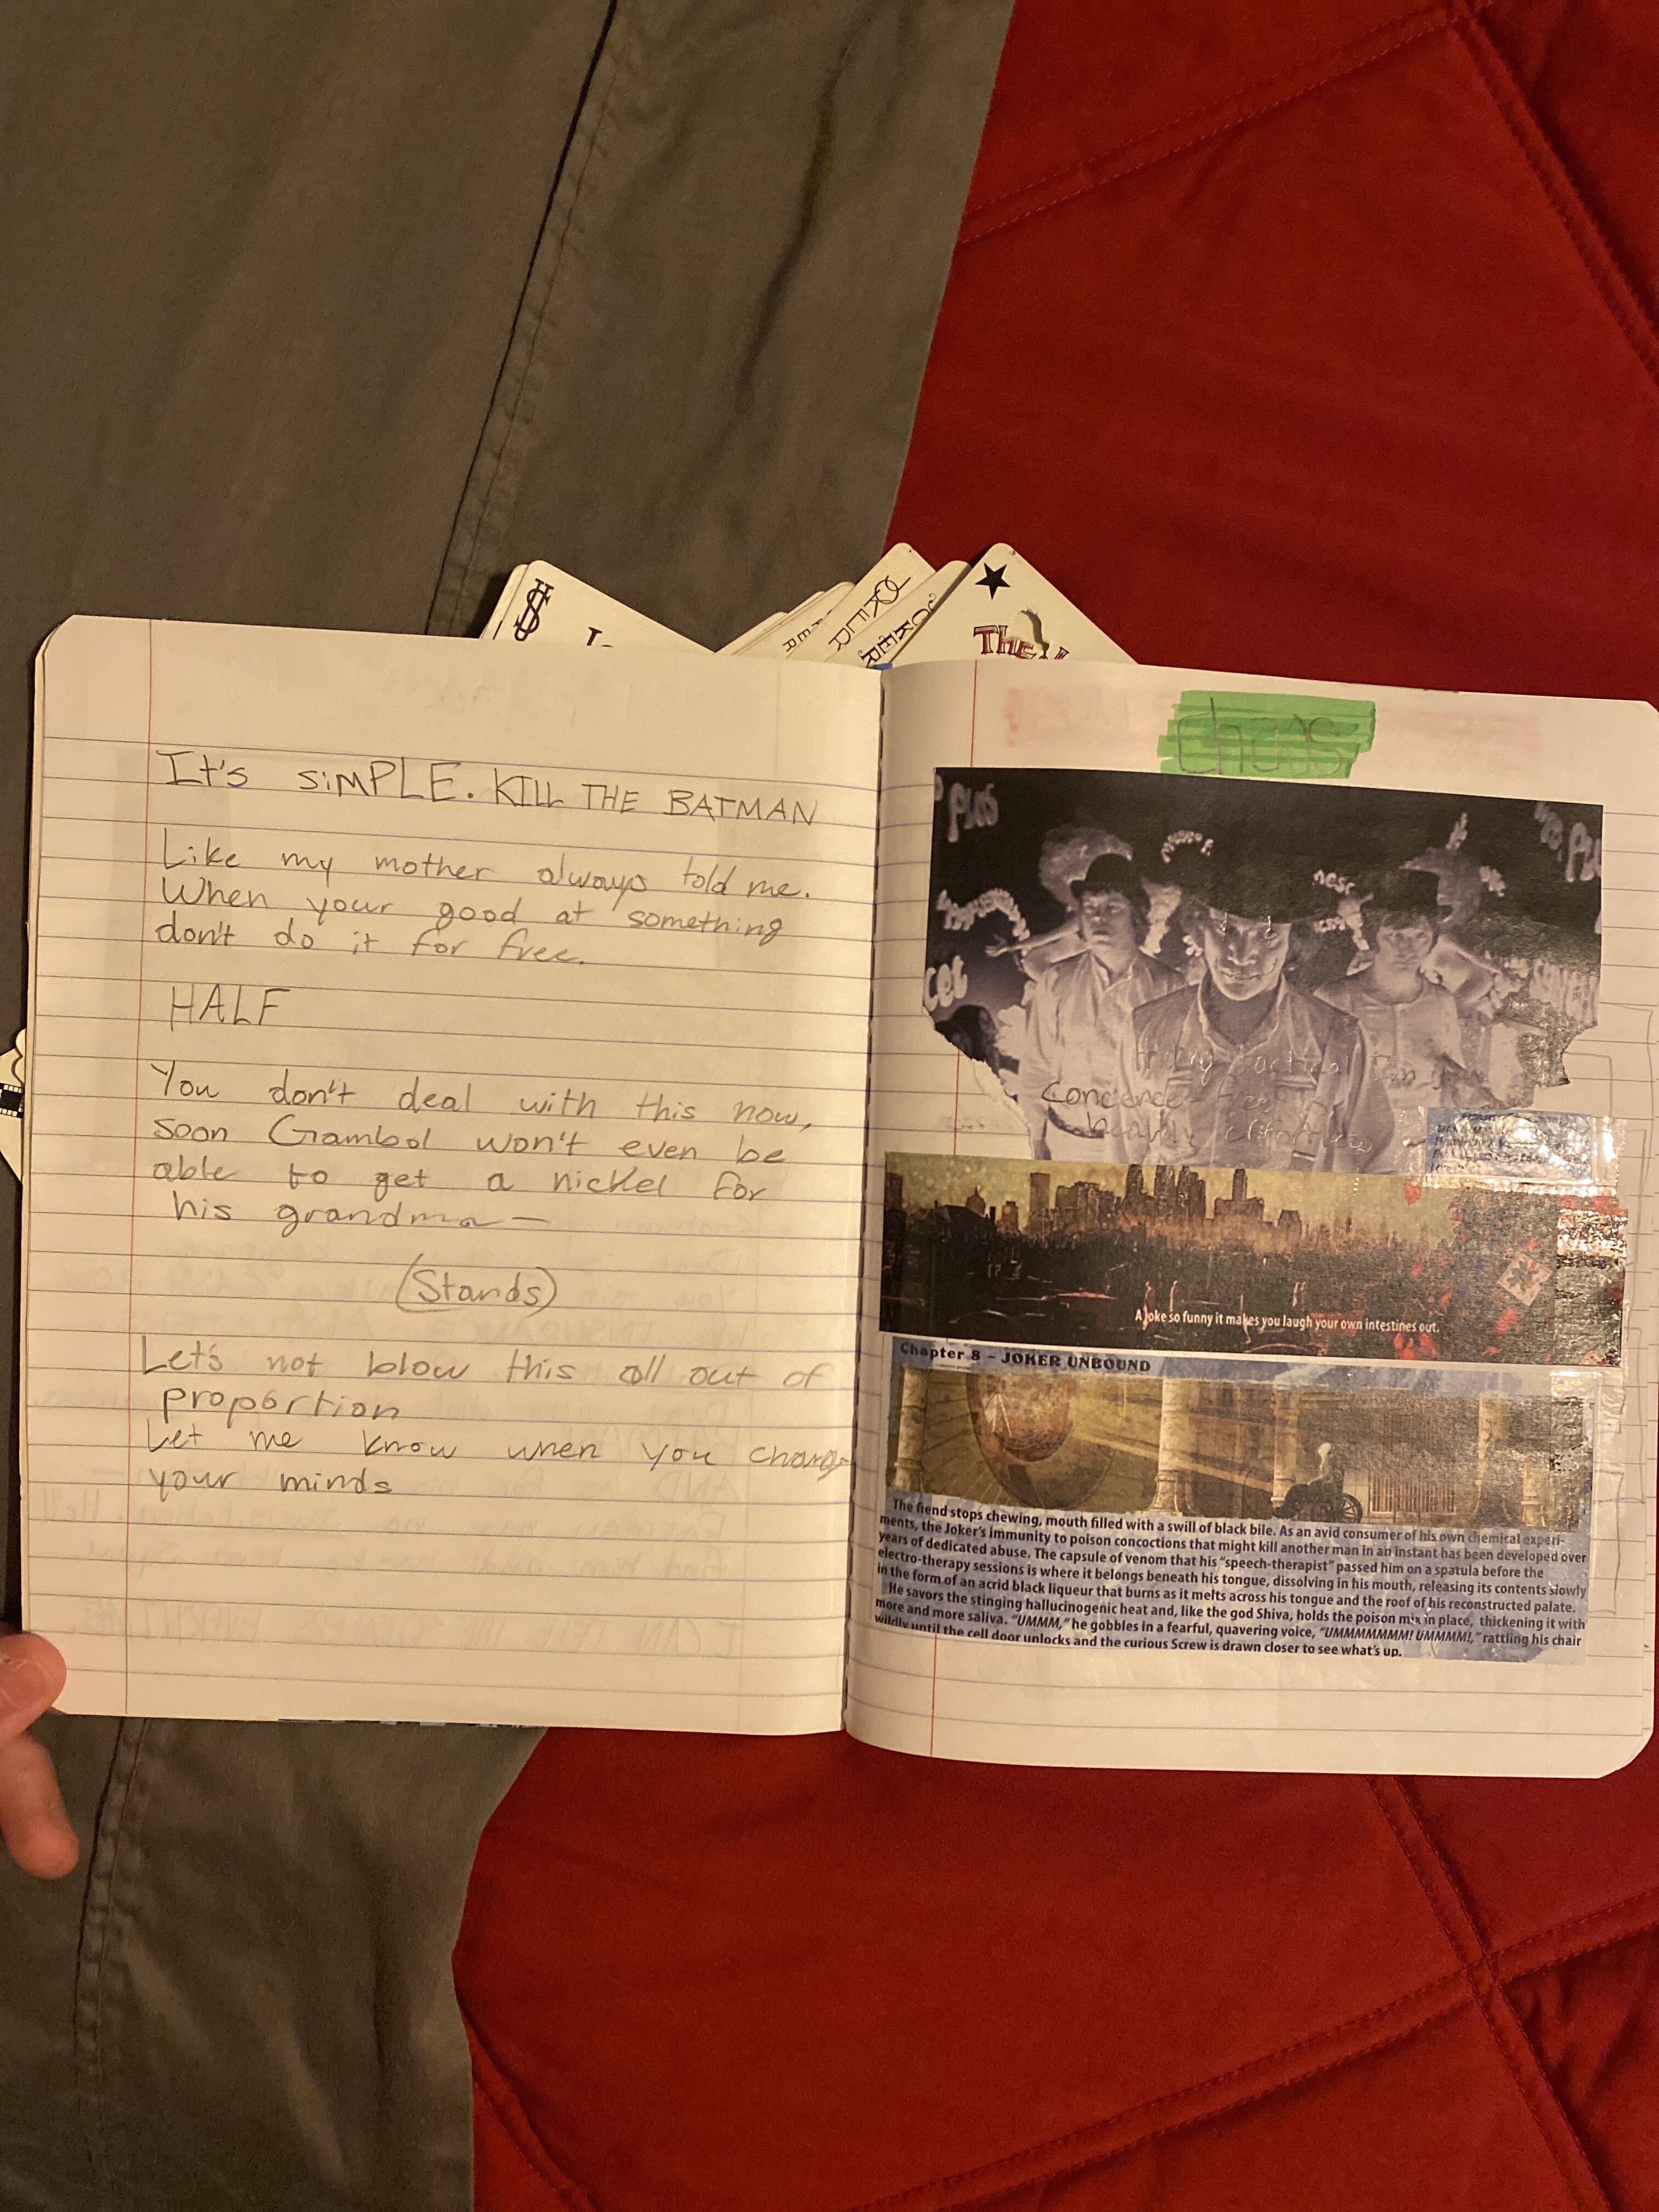 JOKER
JOKER
The
It's SiMPLE. KILL THE BATMAN
Like my mother always told me.
When your good at something
don't do it for free.
HALF
You don't deal with this now,
soon Gambol won't even be
able to get a nickel for
his grandma—
(Stands)
Let's not blow this all out of
proportion
Let me know when you change
your minds
chaos
A Joke so funny it makes you laugh your own intestines out.
Chapter 8 – JOKER UNBOUND
The fiend stops chewing, mouth filled with a swill of black bile. As an avid consumer of his own chemical experi-
ments, the Joker's immunity to poison concoctions that might kill another man in an instant has been developed over
years of dedicated abuse. The capsule of venom that his "speech-therapist" passed him on a spatula before the
electro-therapy sessions is where it belongs beneath his tongue, dissolving in his mouth, releasing its contents slowly
in the form of an acrid black liqueur that burns as it melts across his tongue and the roof of his reconstructed palate.
He savors the stinging hallucinogenic heat and, like the god Shiva, holds the poison mix in place, thickening it with
more and more saliva. "UMMM," he gobbles in a fearful, quavering voice, "UMMMMMMM! UMMMM!," rattling his chair
wildly until the cell door unlocks and the curious Screw is drawn closer to see what's up.